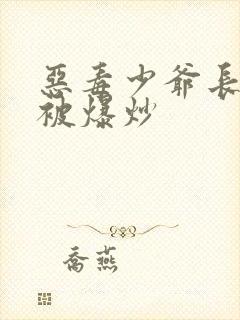 惡毒少爺長
被爆炒
喬燕